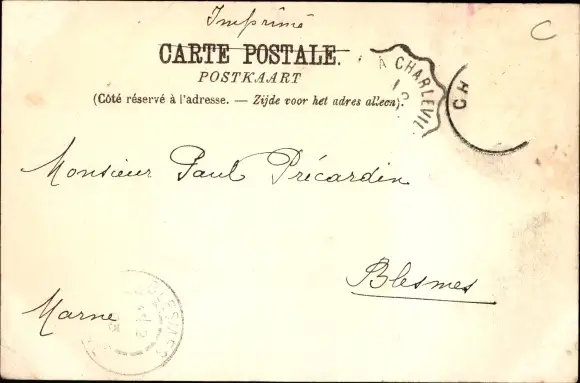 Imprimé
CARTE POSTALE.
POSTKAART
(Côté réservé à l'adresse. — Zijde voor het adres alleen).
A CHARLEVIL
12
CH
C
Monsieur Paul Précardin
Blesmes
Marne
BLESMES